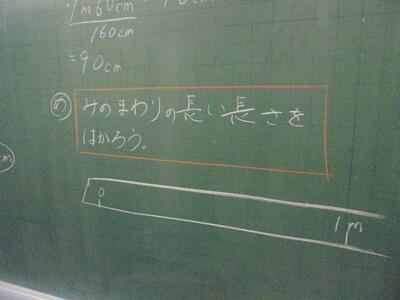 1m60cm
160cm
=90cm
め みのまわりの長い長さを
はかろう。
cm
0
1m